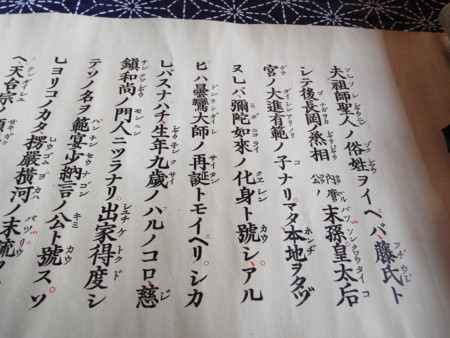 夫祖師聖人ノ俗姓ヲイヘバ藤氏ト
シテ後長岡ノ丞相 内麿公ノ 末孫皇太后
宮ノ大進有範ノ子ナリマタ本地ヲタヅ
ヌレバ彌陀如來ノ化身ト號シアル
ヒハ曇鸞大師ノ再誕トモイヘリシカ
レバスナハチ生年九歳ノハルノコロ慈
鎭和尚ノ門人ニツラナリ出家得度シ
テソノ名ヲ範宴少納言ノ公ト號スソ
レヨリコノカタ楞嚴横河ノ末流ヲ
ヘ天台宗ノ碩